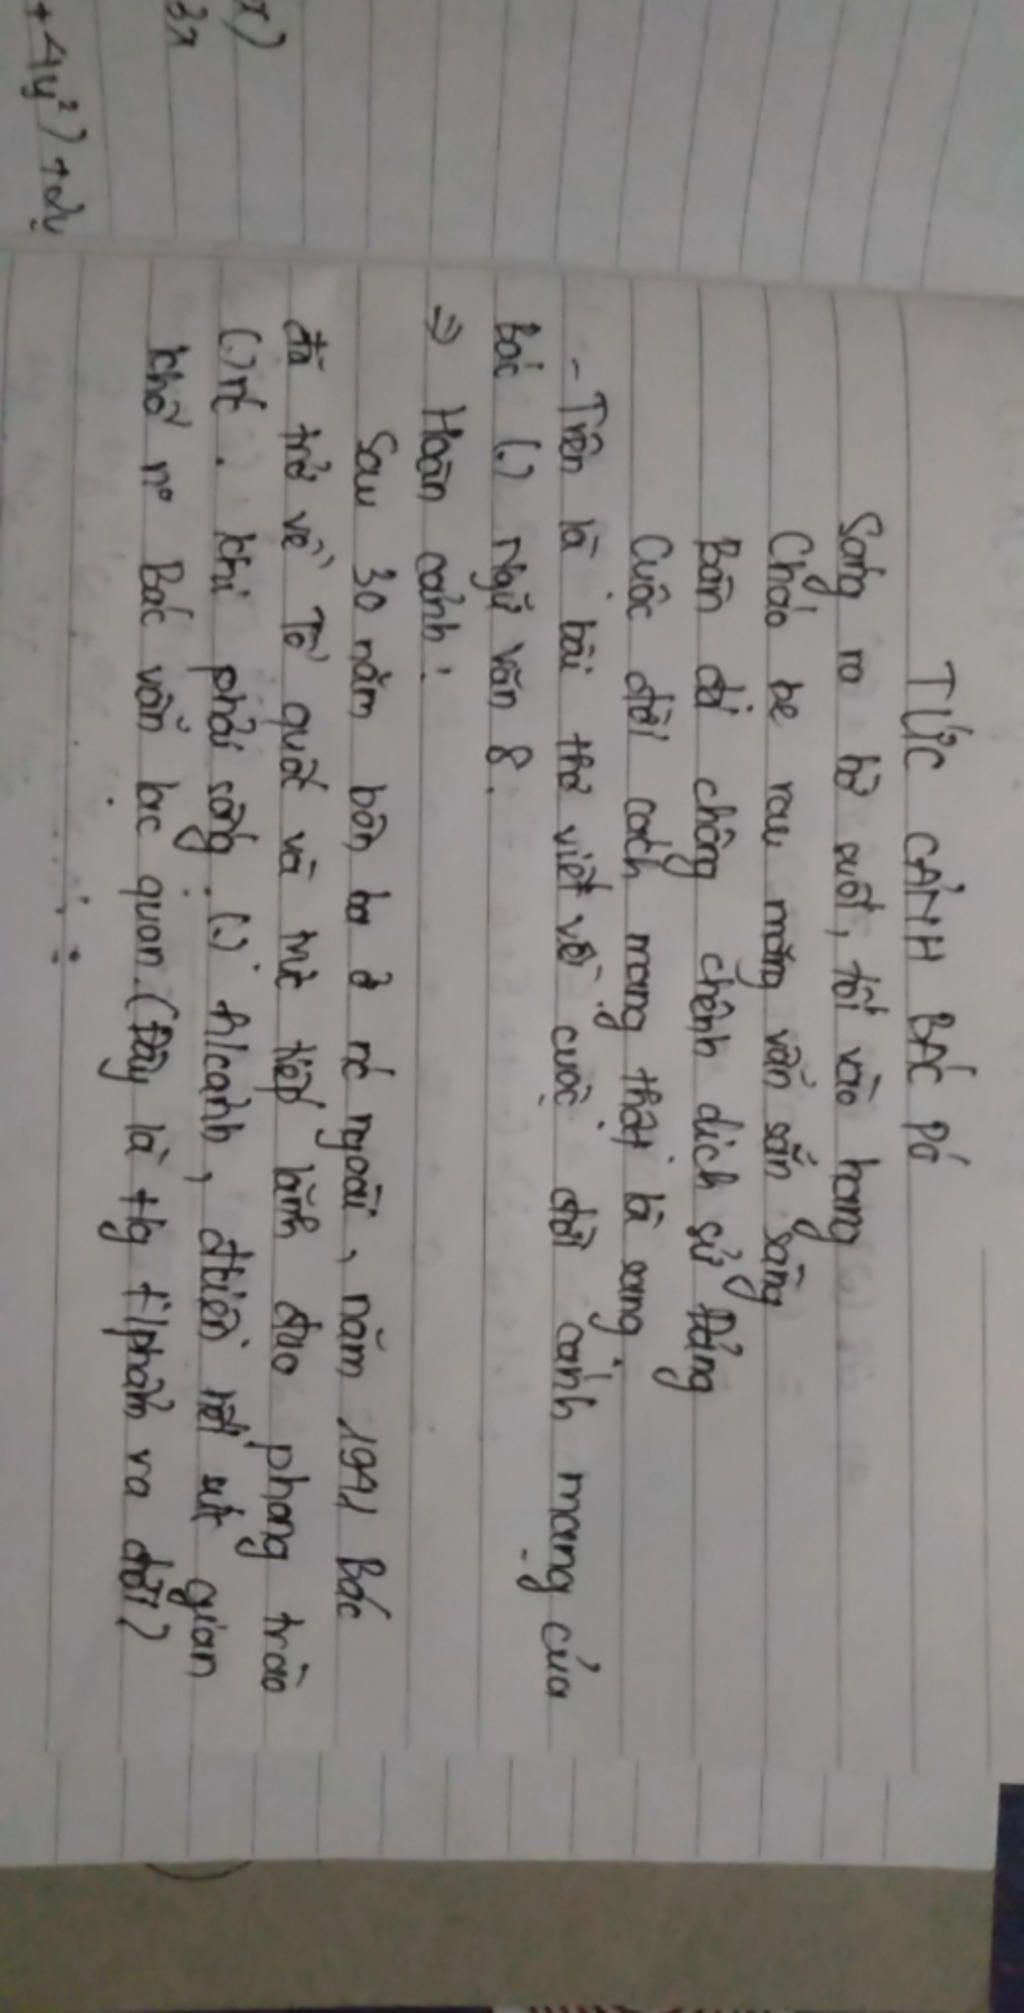 x)
3x
+4y²)+dy
TỨC CẢNH BÁC PÓ
Sáng ra bờ suối, tối vào hang
Cháo be rau măng vẫn sẵn sàng
Bàn đá chông chênh dịch sử Đảng
Cuộc đời cách mạng thật là sang
- Trên là bài thơ viết về cuộc đời cánh mạng của
Bác (.) Ngữ văn 8.
⇒ Hoàn cảnh:
Sau 30 năm bôn ba ở nc ngoài, năm 1941 Bác
đã trở về Tổ quốc và trực tiếp lãnh đạo phong trào
(.) nc. khi phải sống (.) h/cảnh, đkiện hết sức gian
khổ nº Bác vẫn lạc quan. (Đây là t/g t/phẩm ra đời)